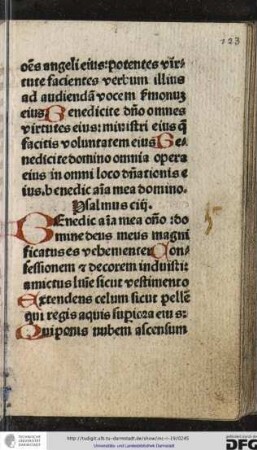 123
oēs angeli eius: potentes vir-
tute facientes verbum illius
ad audiendā vocem s̄monuꝫ
eius Benedicite dn̄o omnes
virtutes eius: ministri eius q̄
facitis voluntatem eius Be-
nedicite domino omnia opera
eius in omni loco dn̄ationis e
ius. benedic aīa mea domino.
Psalmus ciij.
BEnedic aīa mea dn̄o: do
mine deus meus magni
ficatus es vehementer Con-
fessionem ⁊ decorem induisti:
amictus lum̄e sicut vestimento
Extendens celum sicut pellē
qui regis aquis supiora eius:
Qui ponis nubem ascensum
http://tudigit.ulb.tu-darmstadt.de/show/inc-iv-19/0245
Universitäts- und Landesbibliothek Darmstadt
DFG